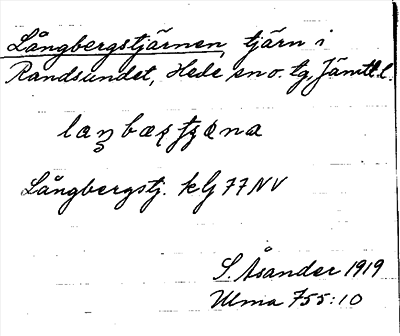 Långbergstjärnen, tjärn i
Randsundet, Hede sn o. tg, Jämtl. l.
Långbergstj. kbl 77 NV
S. Åsander 1919
Ulma 755:10